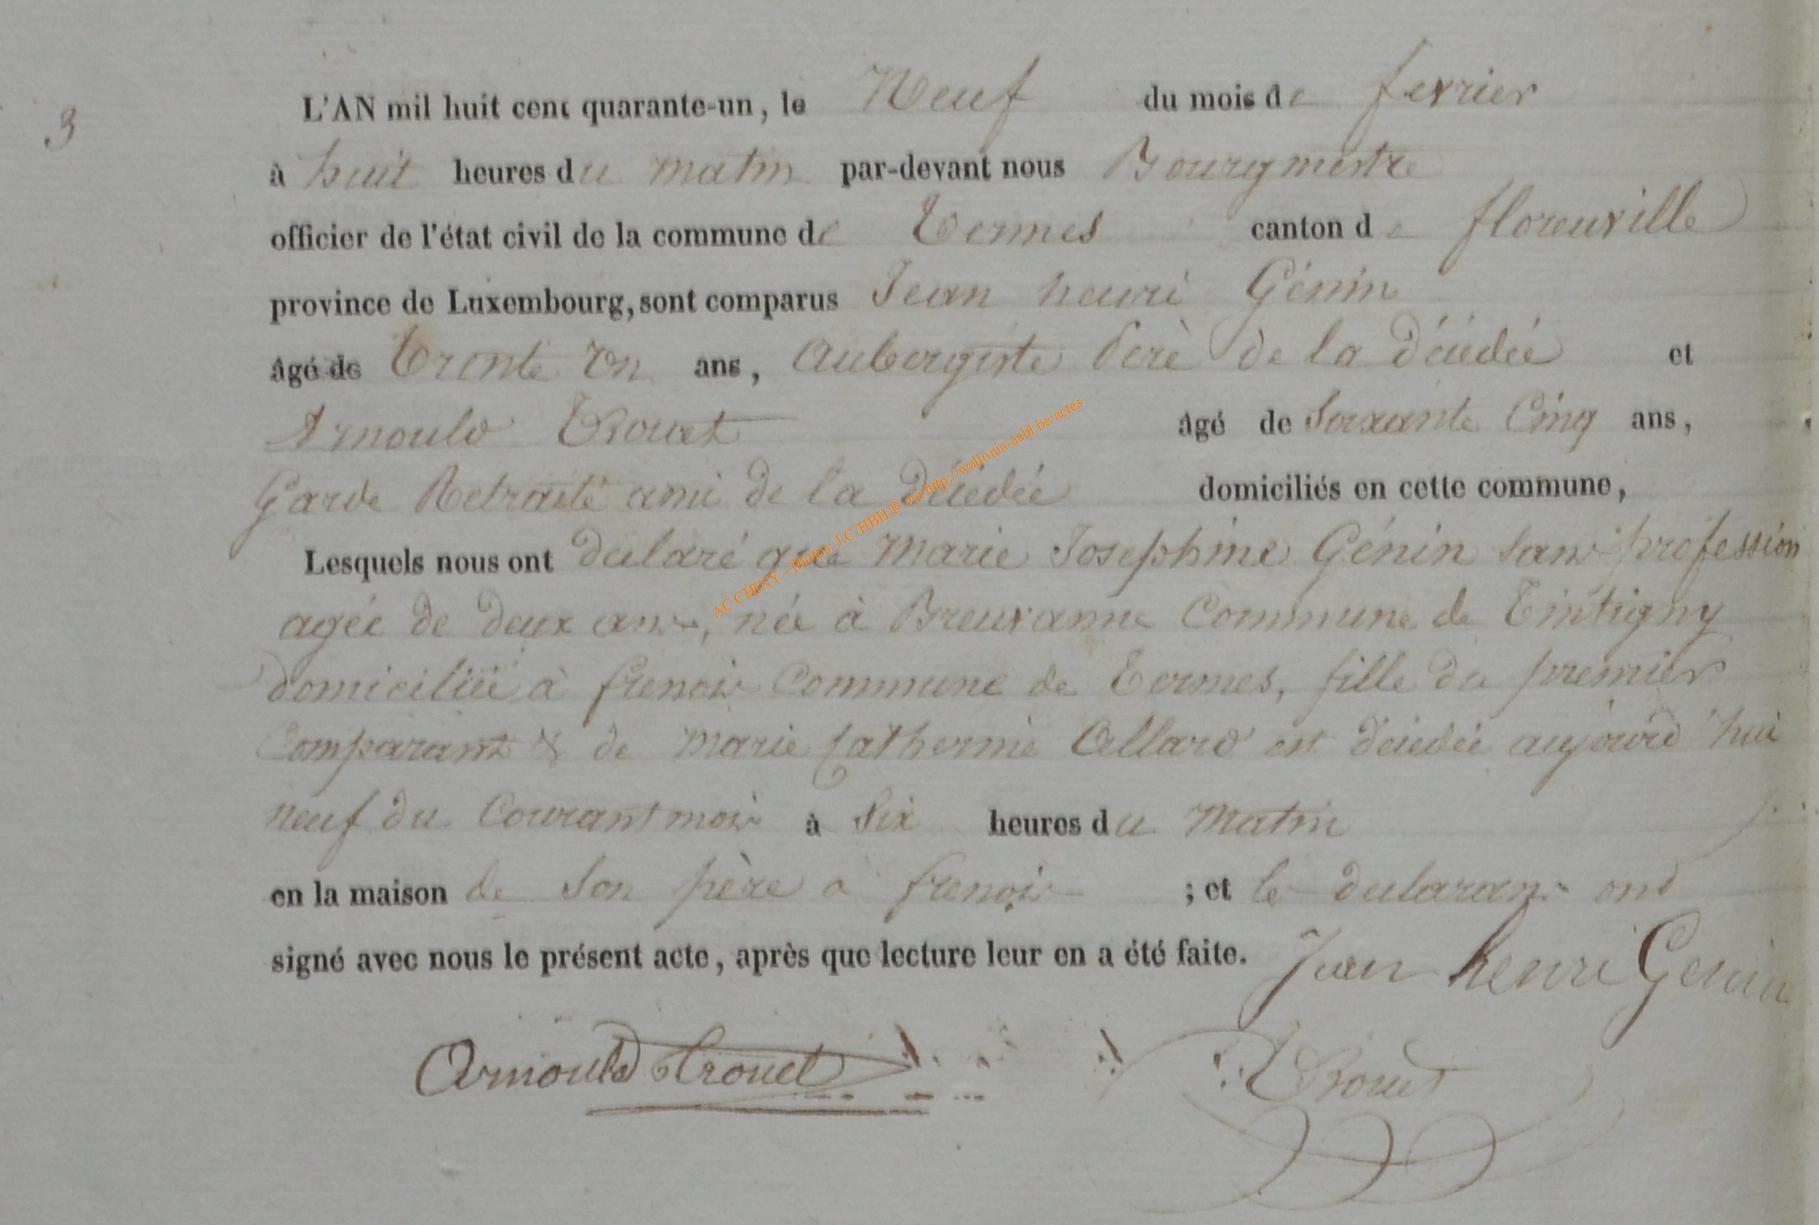 3
L'AN mil huit cent quarante-un, le Neuf du mois de fevrier
à huit heures du matin par-devant nous Bourgmestre
officier de l'état civil de la commune de Termes canton de florenville
province de Luxembourg, sont comparus Jean henri Génin
âgé de trente Un ans, Aubergiste Perè de la décédée et
Arnould Trouet âgé de Soixante Cinq ans,
Garde Retraité ami de la décédée domiciliés en cette commune,
Lesquels nous ont declaré que Marie Josephine Génin sans profession
agée de deux ans, née à Breuvanne Commune de Tintigny
domiciliée à frenois Commune de Termes, fille du premier
Comparant & de Marie Catherine Allard est décédée aujourd'hui
neuf du Courant mois à Six heures du Matin
en la maison de Son père a frenois ; et le declarans ond
signé avec nous le présent acte, après que lecture leur en a été faite. Jean henri Genin
Arnould Trouet Trouet
AC CHINY - Photos J.C./HBH @ via http://wallonia-asbl.be/actes